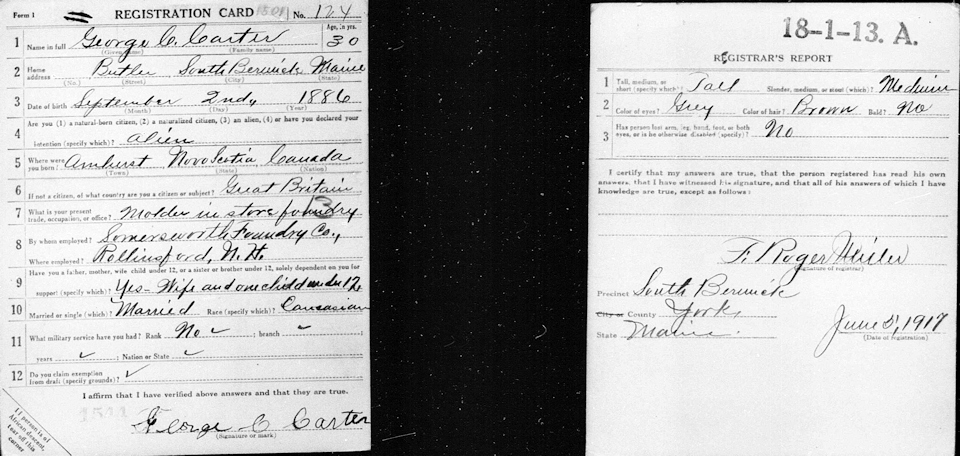 Form 1 REGISTRATION CARD 1501 No. 124
1 Name in full George C. Carter Age, in yrs. 30
(Given name) (Family name)
2 Home address Butler South Berwick Maine
(No.) (Street) (City) (State)
3 Date of birth September 2nd, 1886
(Month) (Day) (Year)
4 Are you (1) a natural-born citizen, (2) a naturalized citizen, (3) an alien, (4) or have you declared your
intention (specify which)? alien
5 Where were you born? Amhurst Nova Scotia Canada
(Town) (State) (Nation)
6 If not a citizen, of what country are you a citizen or subject? Great Britain
7 What is your present trade, occupation, or office? Molder in stove foundry 13
8 By whom employed? Somersworth Foundry Co.,
Where employed? Rollinsford, N. H.
9 Have you a father, mother, wife child under 12, or a sister or brother under 12, solely dependent on you for
support (specify which)? Yes - Wife and one child under 12
10 Married or single (which)? Married Race (specify which)? Caucasian
11 What military service have you had? Rank No ✓ ; branch ✓ ;
years ✓ ; Nation or State ✓
12 Do you claim exemption from draft (specify grounds)? ✓
I affirm that I have verified above answers and that they are true.
1511
George C Carter
(Signature or mark)
If person is of
African descent,
tear off this
corner
18-1-13. A.
REGISTRAR'S REPORT
1 Tall, medium, or short (specify which)? Tall Slender, medium, or stout (which)? Medium
2 Color of eyes? Grey Color of hair? Brown Bald? No
3 Has person lost arm, leg, hand, foot, or both
eyes, or is he otherwise disabled (specify)? No
I certify that my answers are true, that the person registered has read his own
answers, that I have witnessed his signature, and that all of his answers of which I have
knowledge are true, except as follows:
F. Roger
(Signature of registrar)
Precinct South Berwick
City or County York
State Maine.
June 5, 1917
(Date of registration)